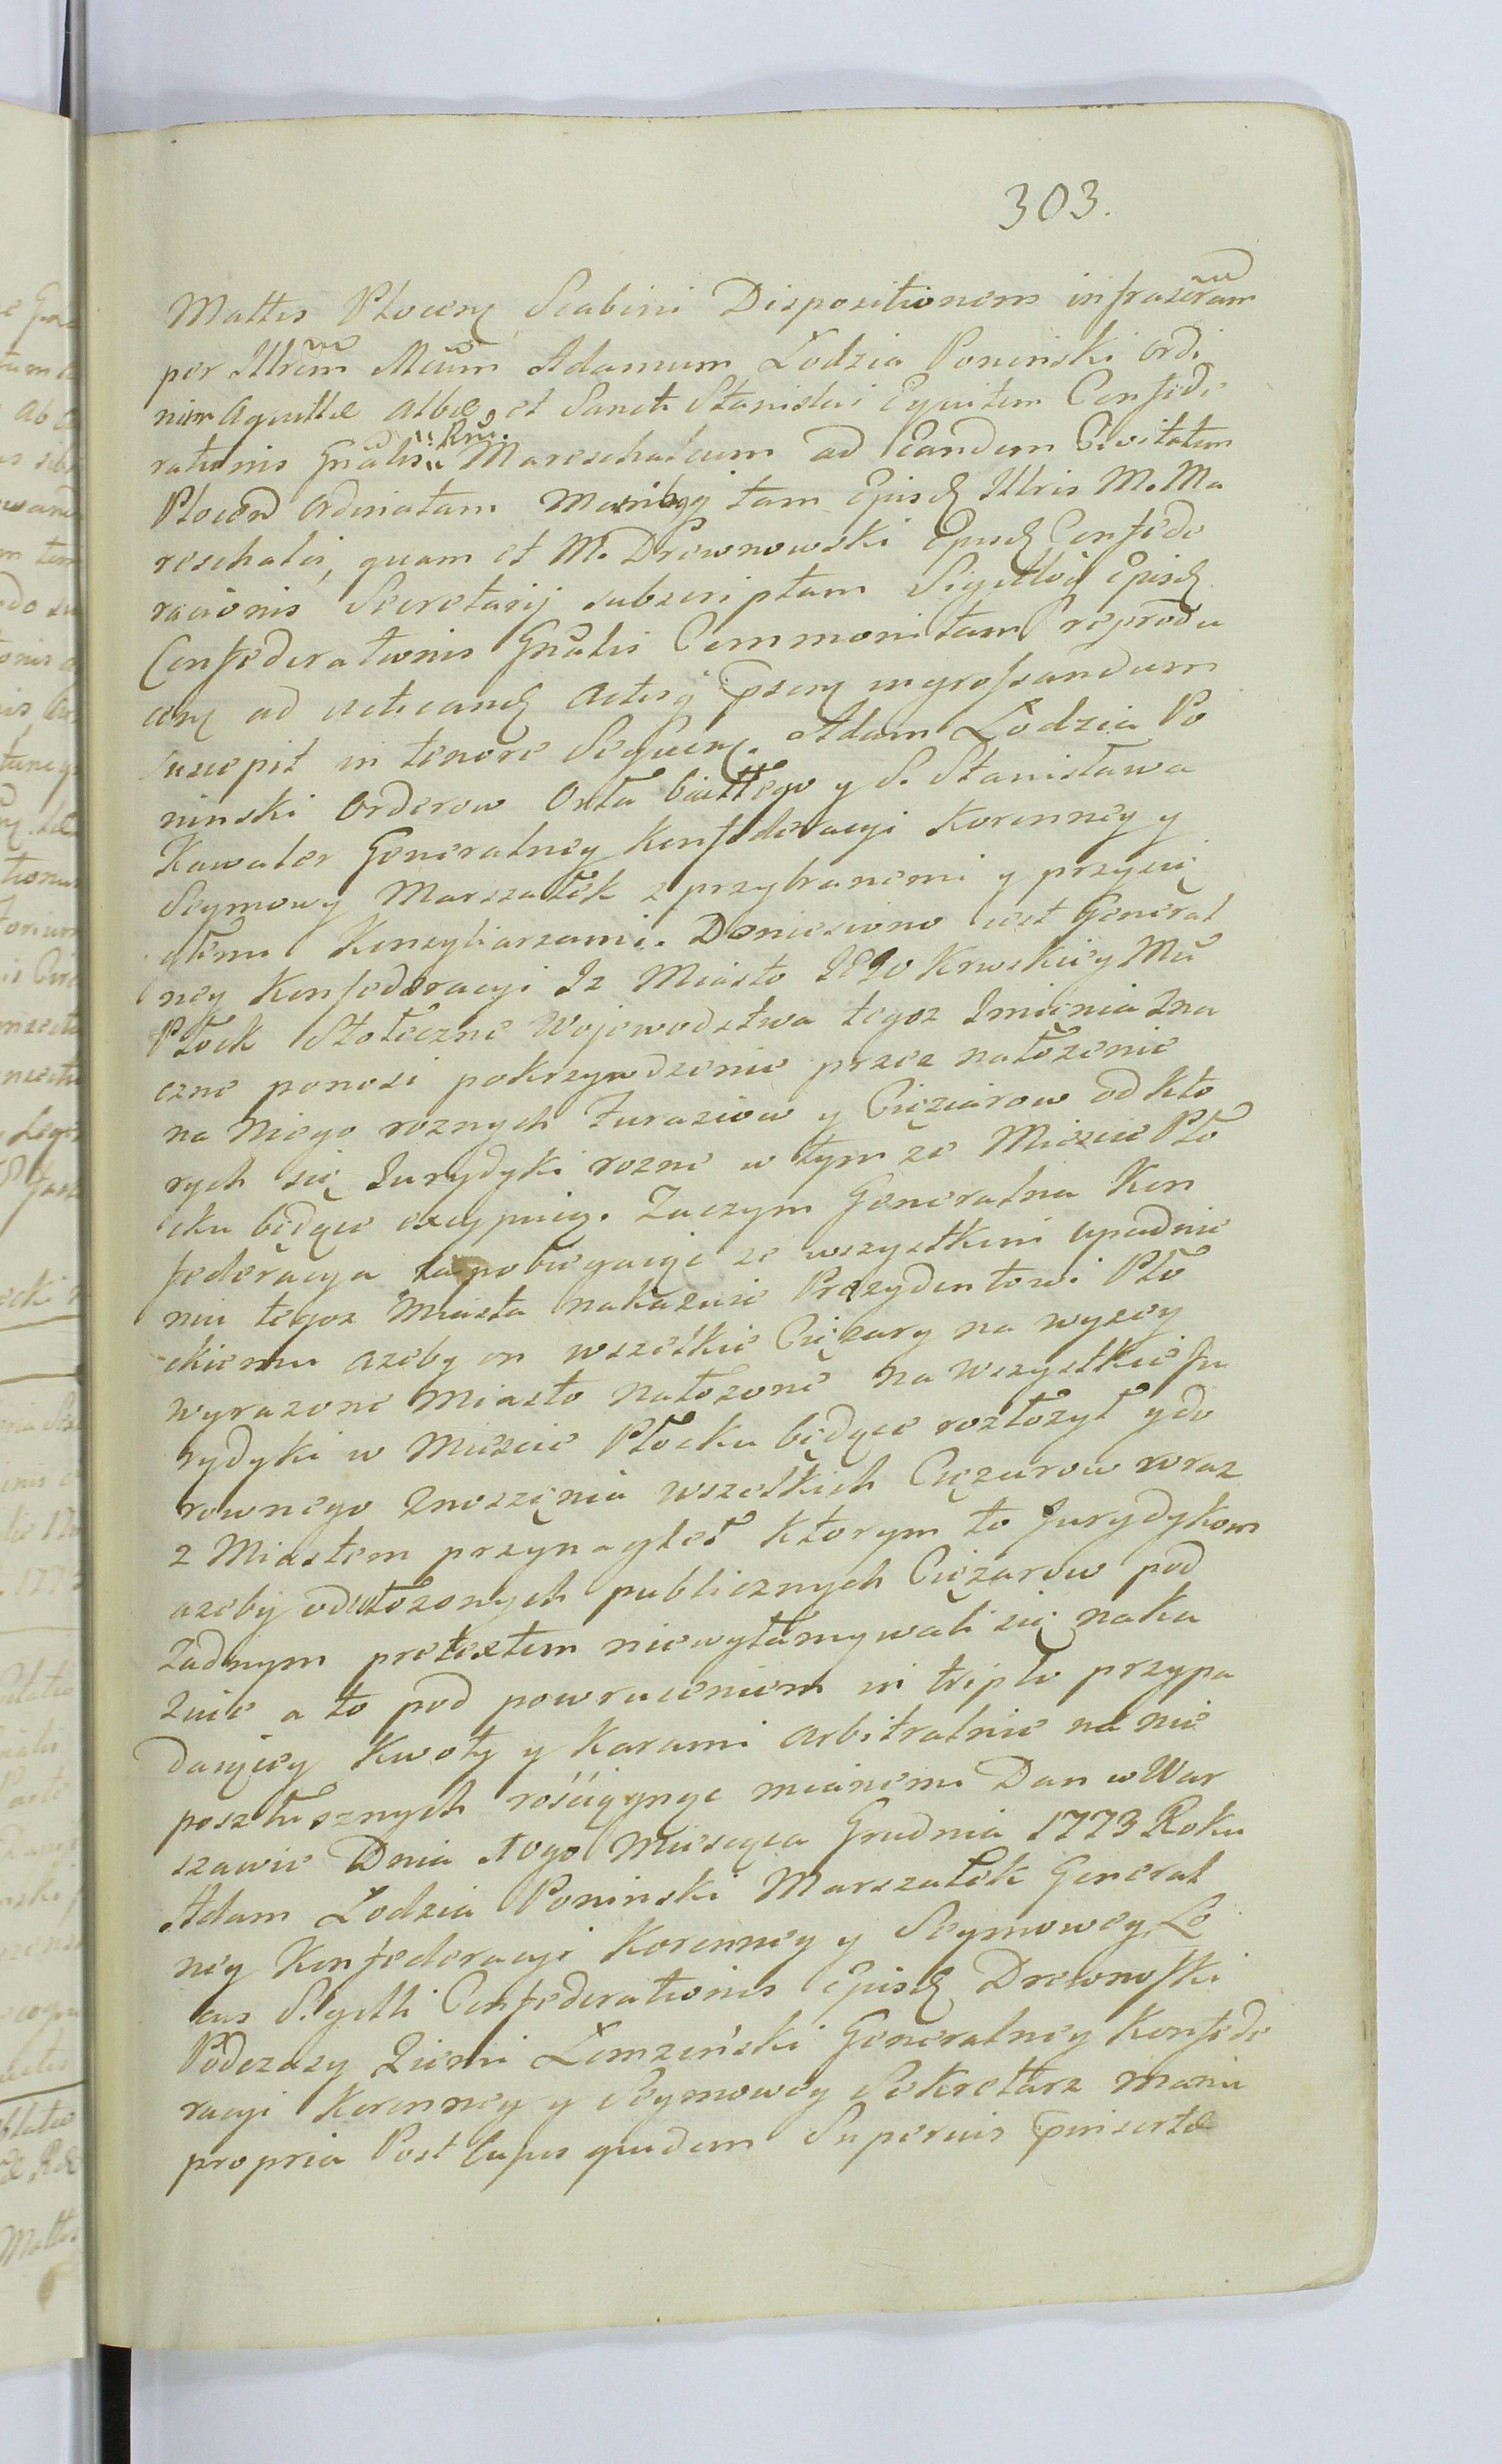 303.
Mattis Plocen Scabini Dispositionem infrascram
per Illrem Mcum Adamum Łodzia Poninski ordi
num Aquillæ albæ, et Sancti Stanislai Equitem Confede
rationis Gnalis Rni. Mareschalcum ad Eandem Civitatem
Plocen ordinatam Manibq tam Ejusd Illris M. Ma
reschalci, quam et M. Drewnowski Ejusd Confede
racionis Secretarij subscriptam Sigilloq Ejusd
Confederationis Gnalis Communitam reprodu
cen ad acticand Actisq psen ingrossandum
suscepit in tenore Sequen. Adam Łodzia Po
ninski Orderow Orła białłego y S. Stanisława
Kawaler Generalney Konfederacyi Koronney y
Seymowy Marszałek z przybranemi y przysię
głemi Konsyliarzami. Doniesiono iest General
ney Konfederacyi Iz Miasto JEgo Krwskiey Mci
Płock Stołeczne Wojewodztwa tegoz Imięnia zna
czne ponosi pokrzywdzenie przez nałozenie
na niego roznych Zuraziow y Cięziarow od kto
rych się Jurydyki rozne w tym ze Miescie Pło
cku będące excypuią. Zaczym Generalna Kon
federacya zapobiegaiąc ze wszystkim upadnie
niu tegoz Miasta nakazuie Prezydentowi Pło
ckiemu azeby on wszelkie Cięzary na wyzey
wyrazone Miasto nałozone na wszystkie Ju
rydyki w Miescie Płocku będące rozłozył y do
rownego znoszęnia wszelkich Cięzarow wraz
z Miastem przynaglał ktorym to Jurydykom
azeby od włozonych publicznych Cięzarow pod
zadnym pretextem niewyłamywali się naka
zuie a to pod powroceniem in triplo przypa
daiącey kwoty y karami arbitralnie na nie
poszłusznych rościągnąc mianemi Dan w War
szawie Dnia 10go Miesiąca Grudnia 1773 Roku
Adam Łodzia Poninski Marszałek General
ney Konfederacyi Koronney y Seymowey, Lo
cus Sigilli Confederationis Ejusd Drewnoski
Podczaszy Ziemi Łomzeński Generalney Konfede
racyi Koronney y Seymowey Sekretarz manu
propria Post cujus quidem Superius pinsertæ